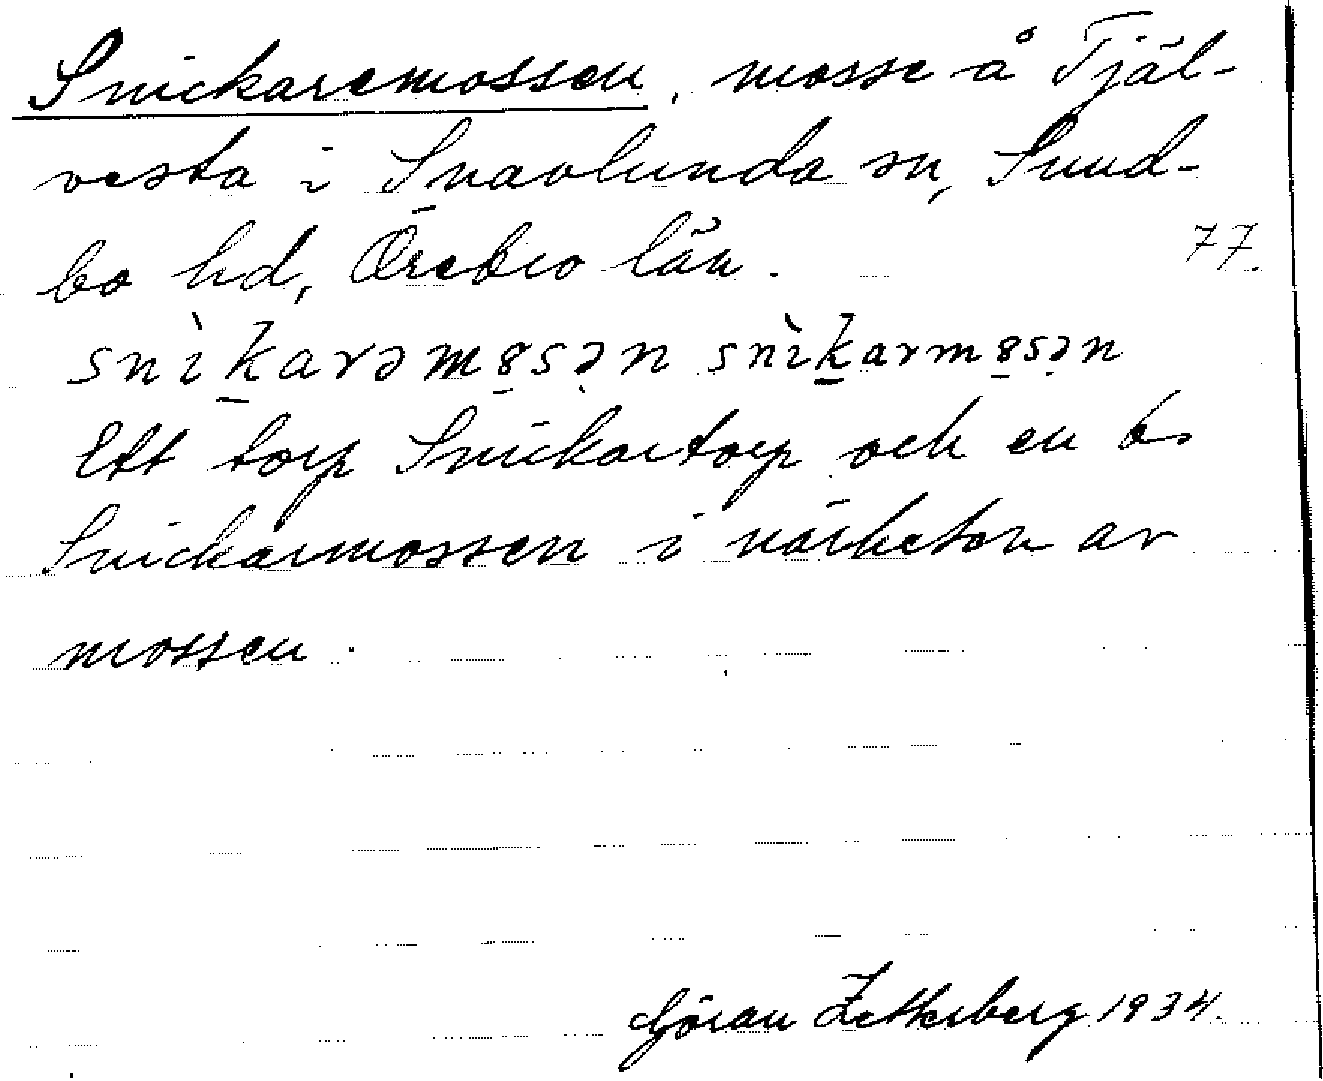 Snickaremossen, mosse å Tjäl-
vesta i Snavlunda sn, Sund-
bo hd, Örebro län. 77.
snìkarəmȣsən snìkarmȣsən
Ett torp Snickartorp och en b.
Snickarmossen i närheten av
mossen.
Göran Zetterberg 1934.